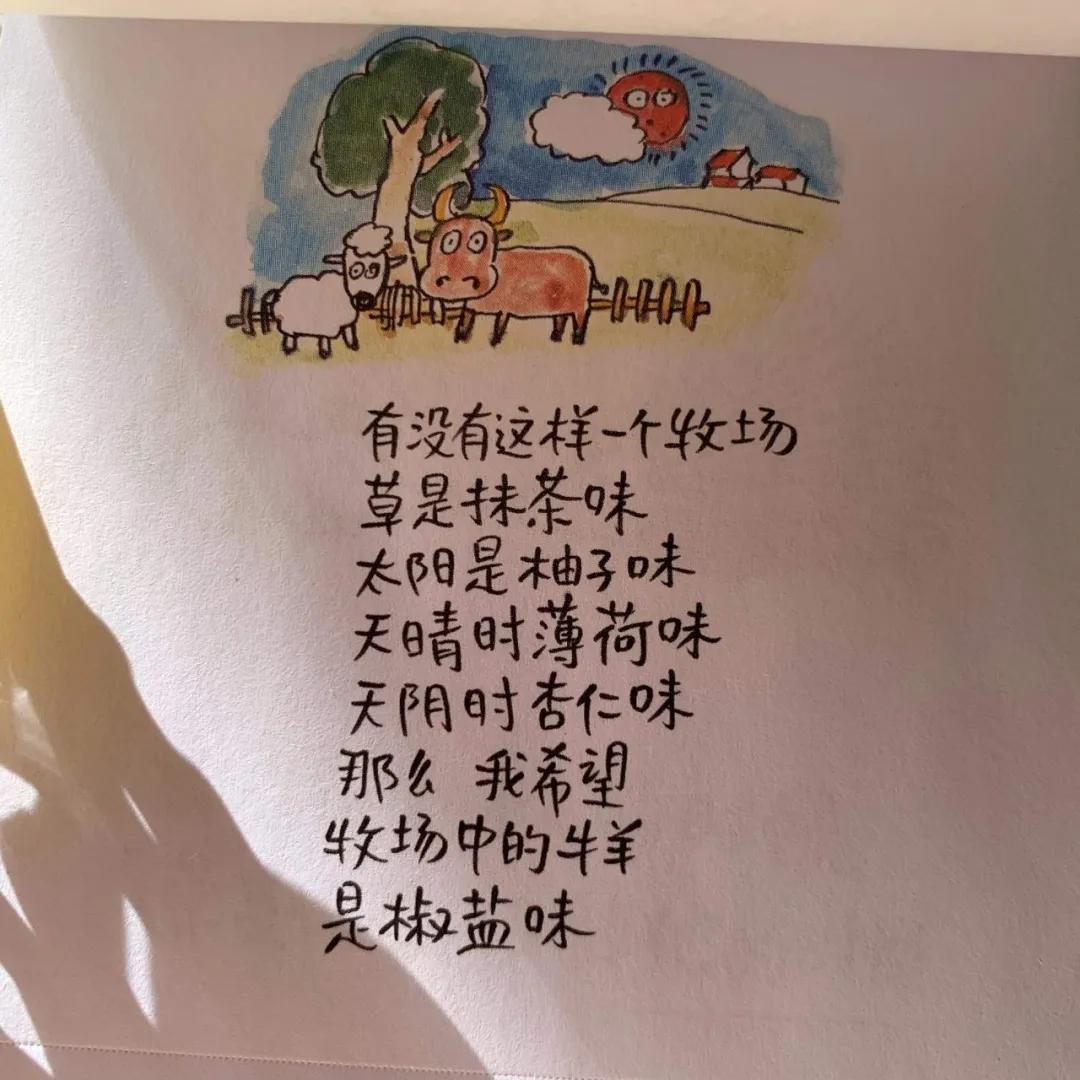 有没有这样一个牧场
草是抹茶味
太阳是柚子味
天晴时薄荷味
天阴时杏仁味
那么 我希望
牧场中的牛羊
是椒盐味